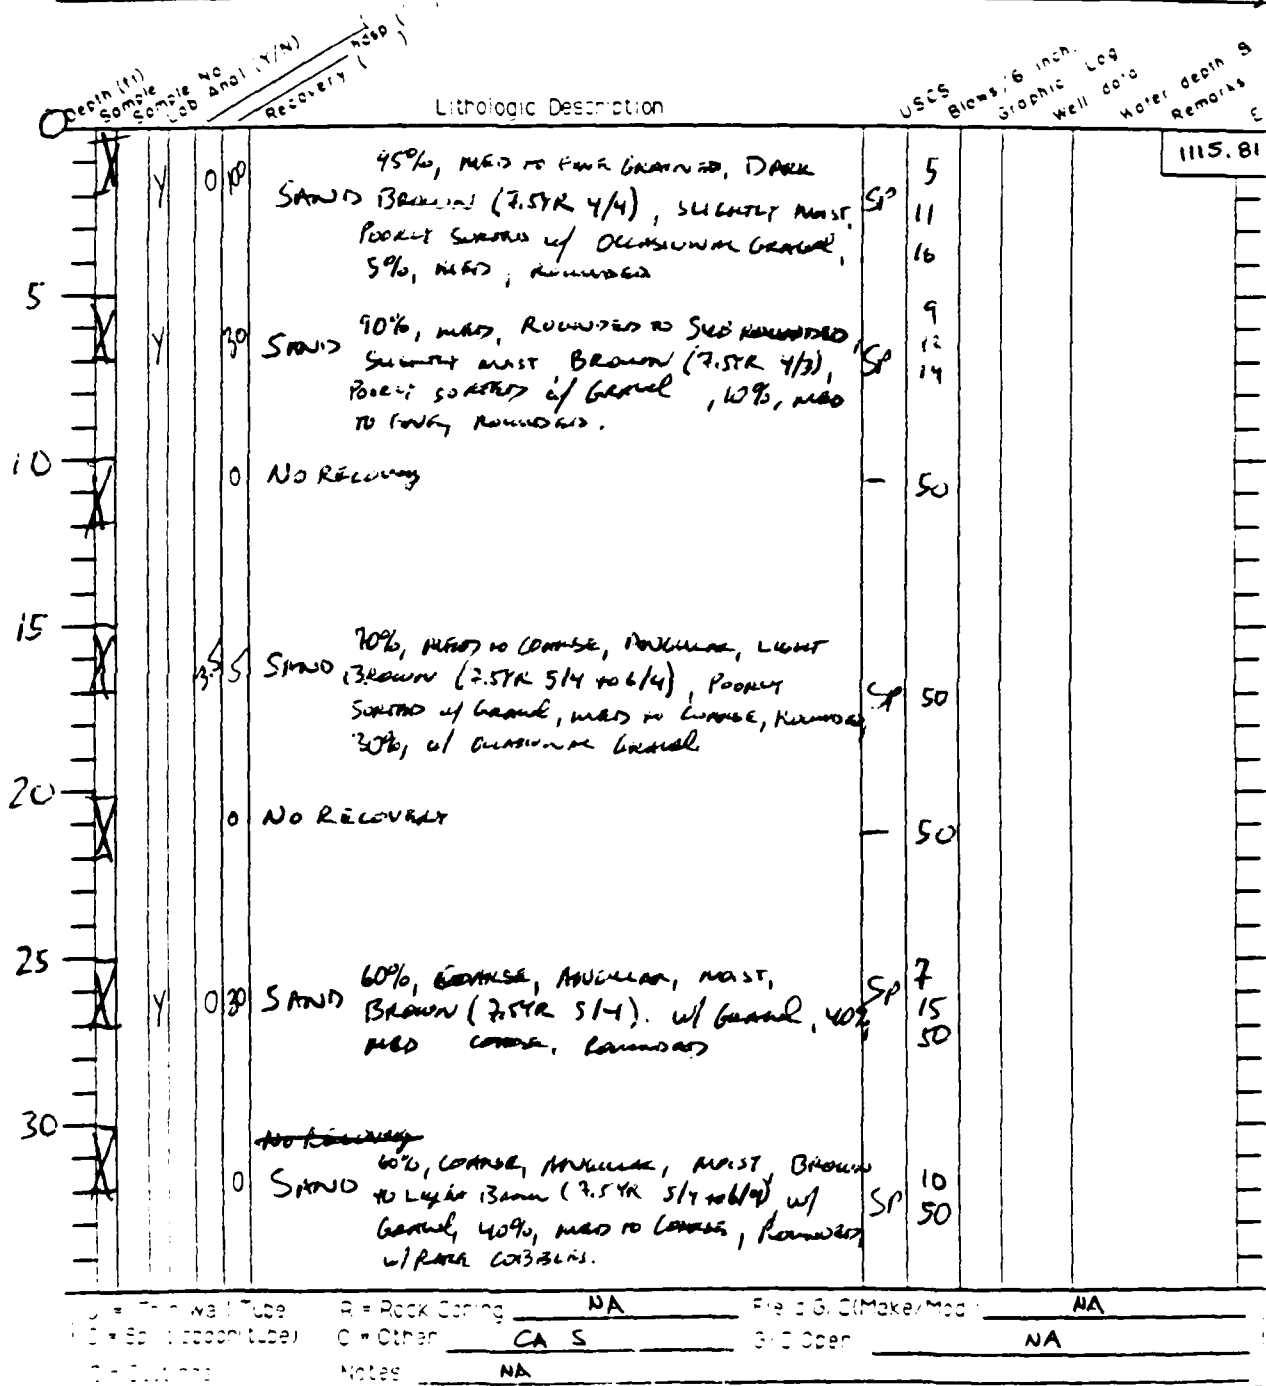 Depth (ft)
Sample
Sample No
Lab Anal (Y/N)
Recovery (
Lithologic Description
USCS
Blows/6 inch.
Graphic Log
Well data
Water depth &
Remarks
E
0
1115.81
Y 0 100 SAND 95%, MED TO FINE GRAINED, DARK
BROWN (7.5YR 4/4), SLIGHTLY MOIST,
POORLY SORTED w/ OCCASIONAL GRAVEL,
5%, MED, ROUNDED
SP 5
11
16
5
Y 30 SAND 90%, MED, ROUNDED TO SUB ROUNDED,
SLIGHTLY MOIST BROWN (7.5YR 4/3),
POORLY SORTED w/ GRAVEL, 10%, MED
TO FINE, ROUNDED.
SP 9
12
14
10
0 NO RECOVERY - 50
15
3.5 5 SAND 70%, MED TO COARSE, ANGULAR, LIGHT
BROWN (7.5YR 5/4 TO 6/4), POORLY
SORTED w/ GRAVEL, MED TO COARSE, ROUNDED,
30%, w/ OCCASIONAL GRAVEL
SP 50
20
0 NO RECOVERY - 50
25
Y 0 30 SAND 60%, COARSE, ANGULAR, MOIST,
BROWN (7.5YR 5/4). w/ GRAVEL, 40%,
MED COARSE, ROUNDED
SP 7
15
50
30
NO RECOVERY
0 SAND 60%, COARSE, ANGULAR, MOIST, BROWN
TO LIGHT BROWN (7.5YR 5/4 TO 6/4) w/
GRAVEL, 40%, MED TO COARSE, ROUNDED,
w/ RARE COBBLES.
SP 10
50
= Thin Wall Tube R = Rock Coring NA Field G/C(Make/Mod NA
(spoon tube) O = Other CA S G/C Oper NA
Notes NA